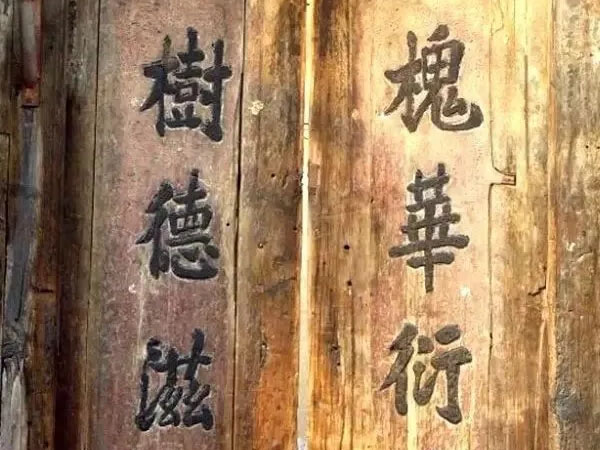 槐華衍
樹德滋